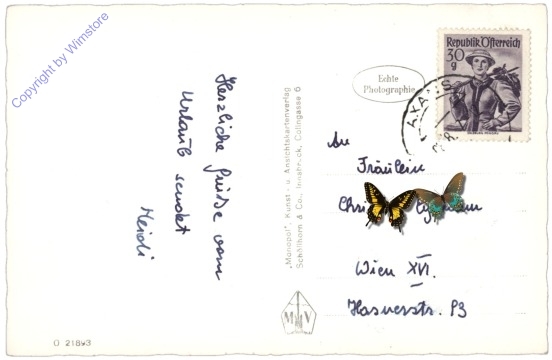 Copyright by Wimstore
Herzliche Grüße vom
Urlaub sendet
Heidi
"Monopol", Kunst- u. Ansichtskartenverlag
Schöllhorn & Co., Innsbruck, Colingasse 6
Echte
Photographie
Republik Österreich
30
g
AXAMS
An
Fräulein
Wien XVI.
Hasnerstr.
M V
O 21893